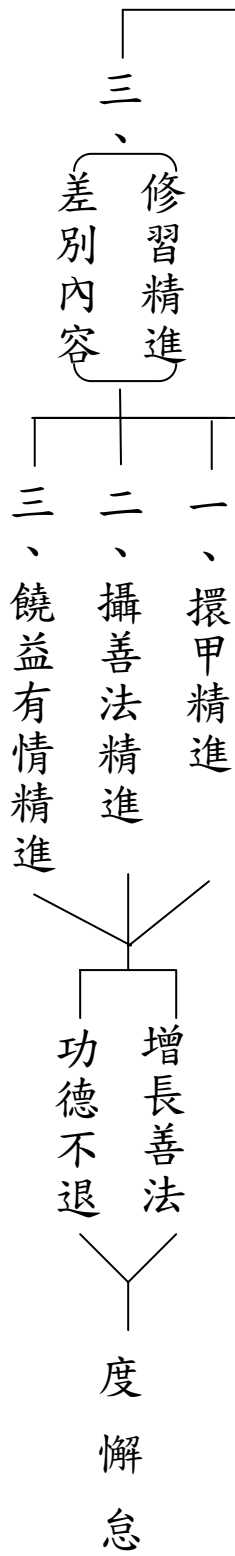 三、
修習精進
差別內容
一、擐甲精進
二、攝善法精進
三、饒益有情精進
增長善法
功德不退
度懈怠